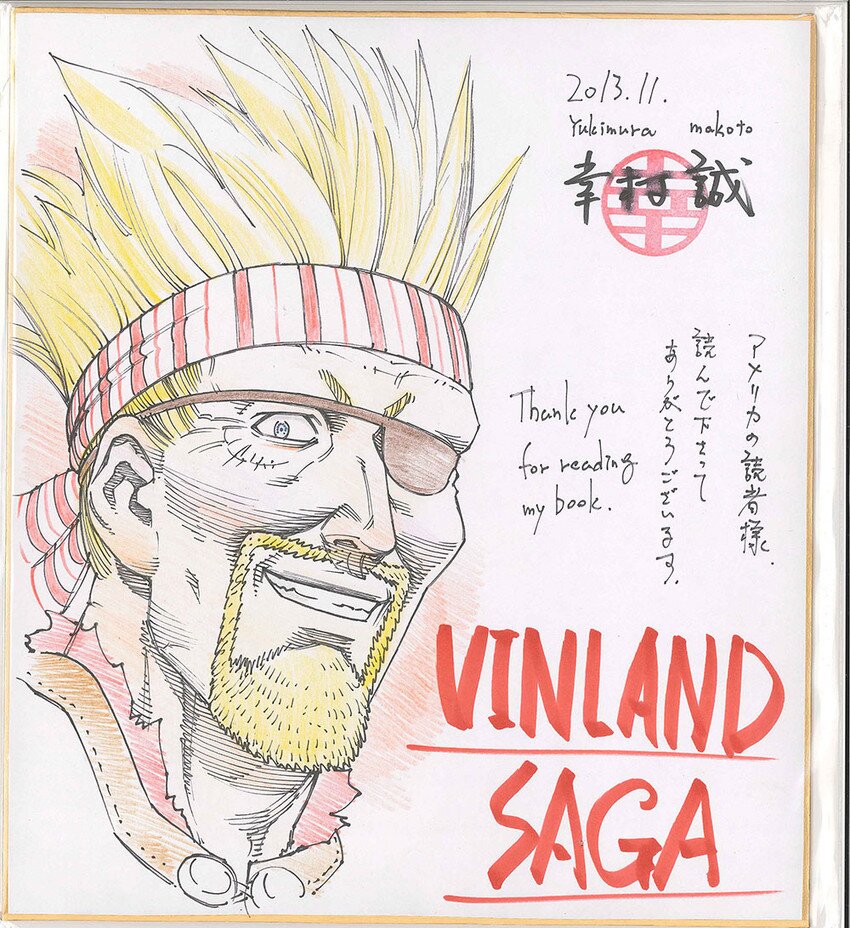 2013.11.
Yukimura makoto
幸村誠
アメリカの読者様.
読んで下さって
ありがとうございます.
Thank you
for reading
my book.
VINLAND
SAGA